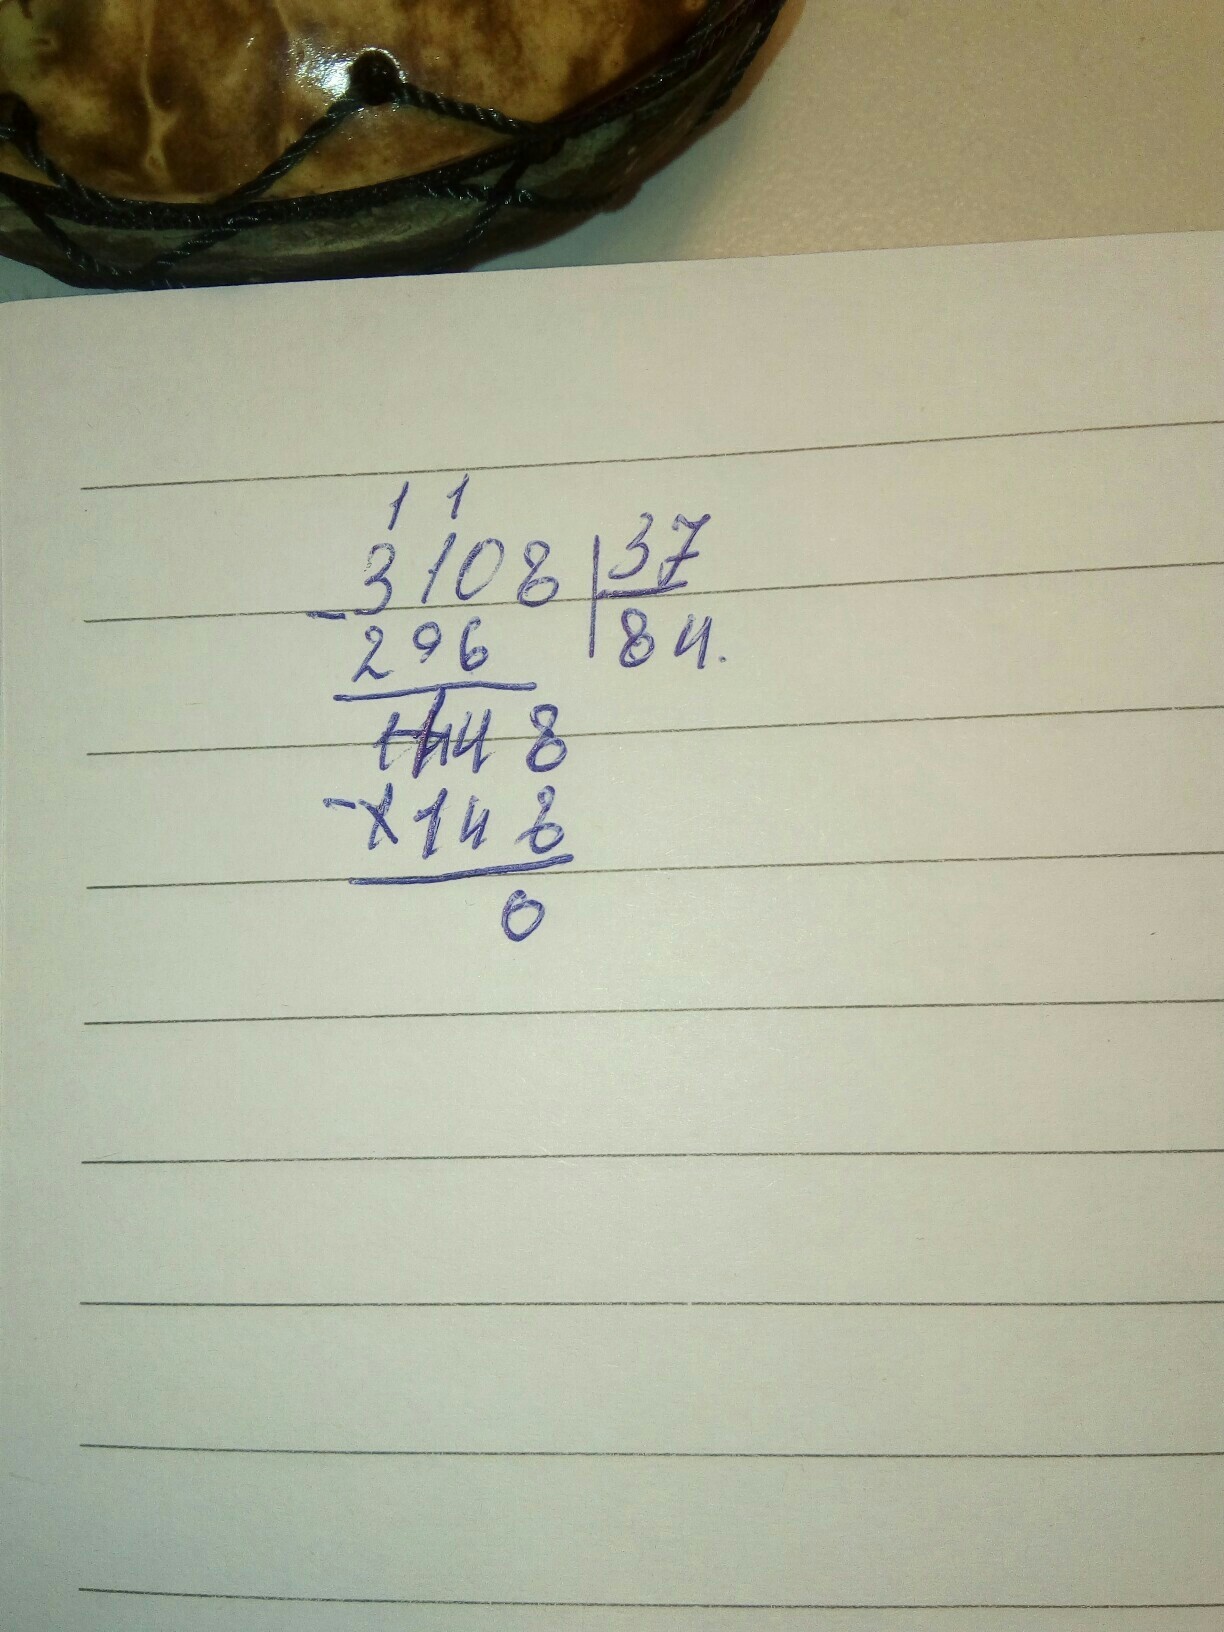 1 1
3108 | 37
- 296 | 84.
148
- 148
0